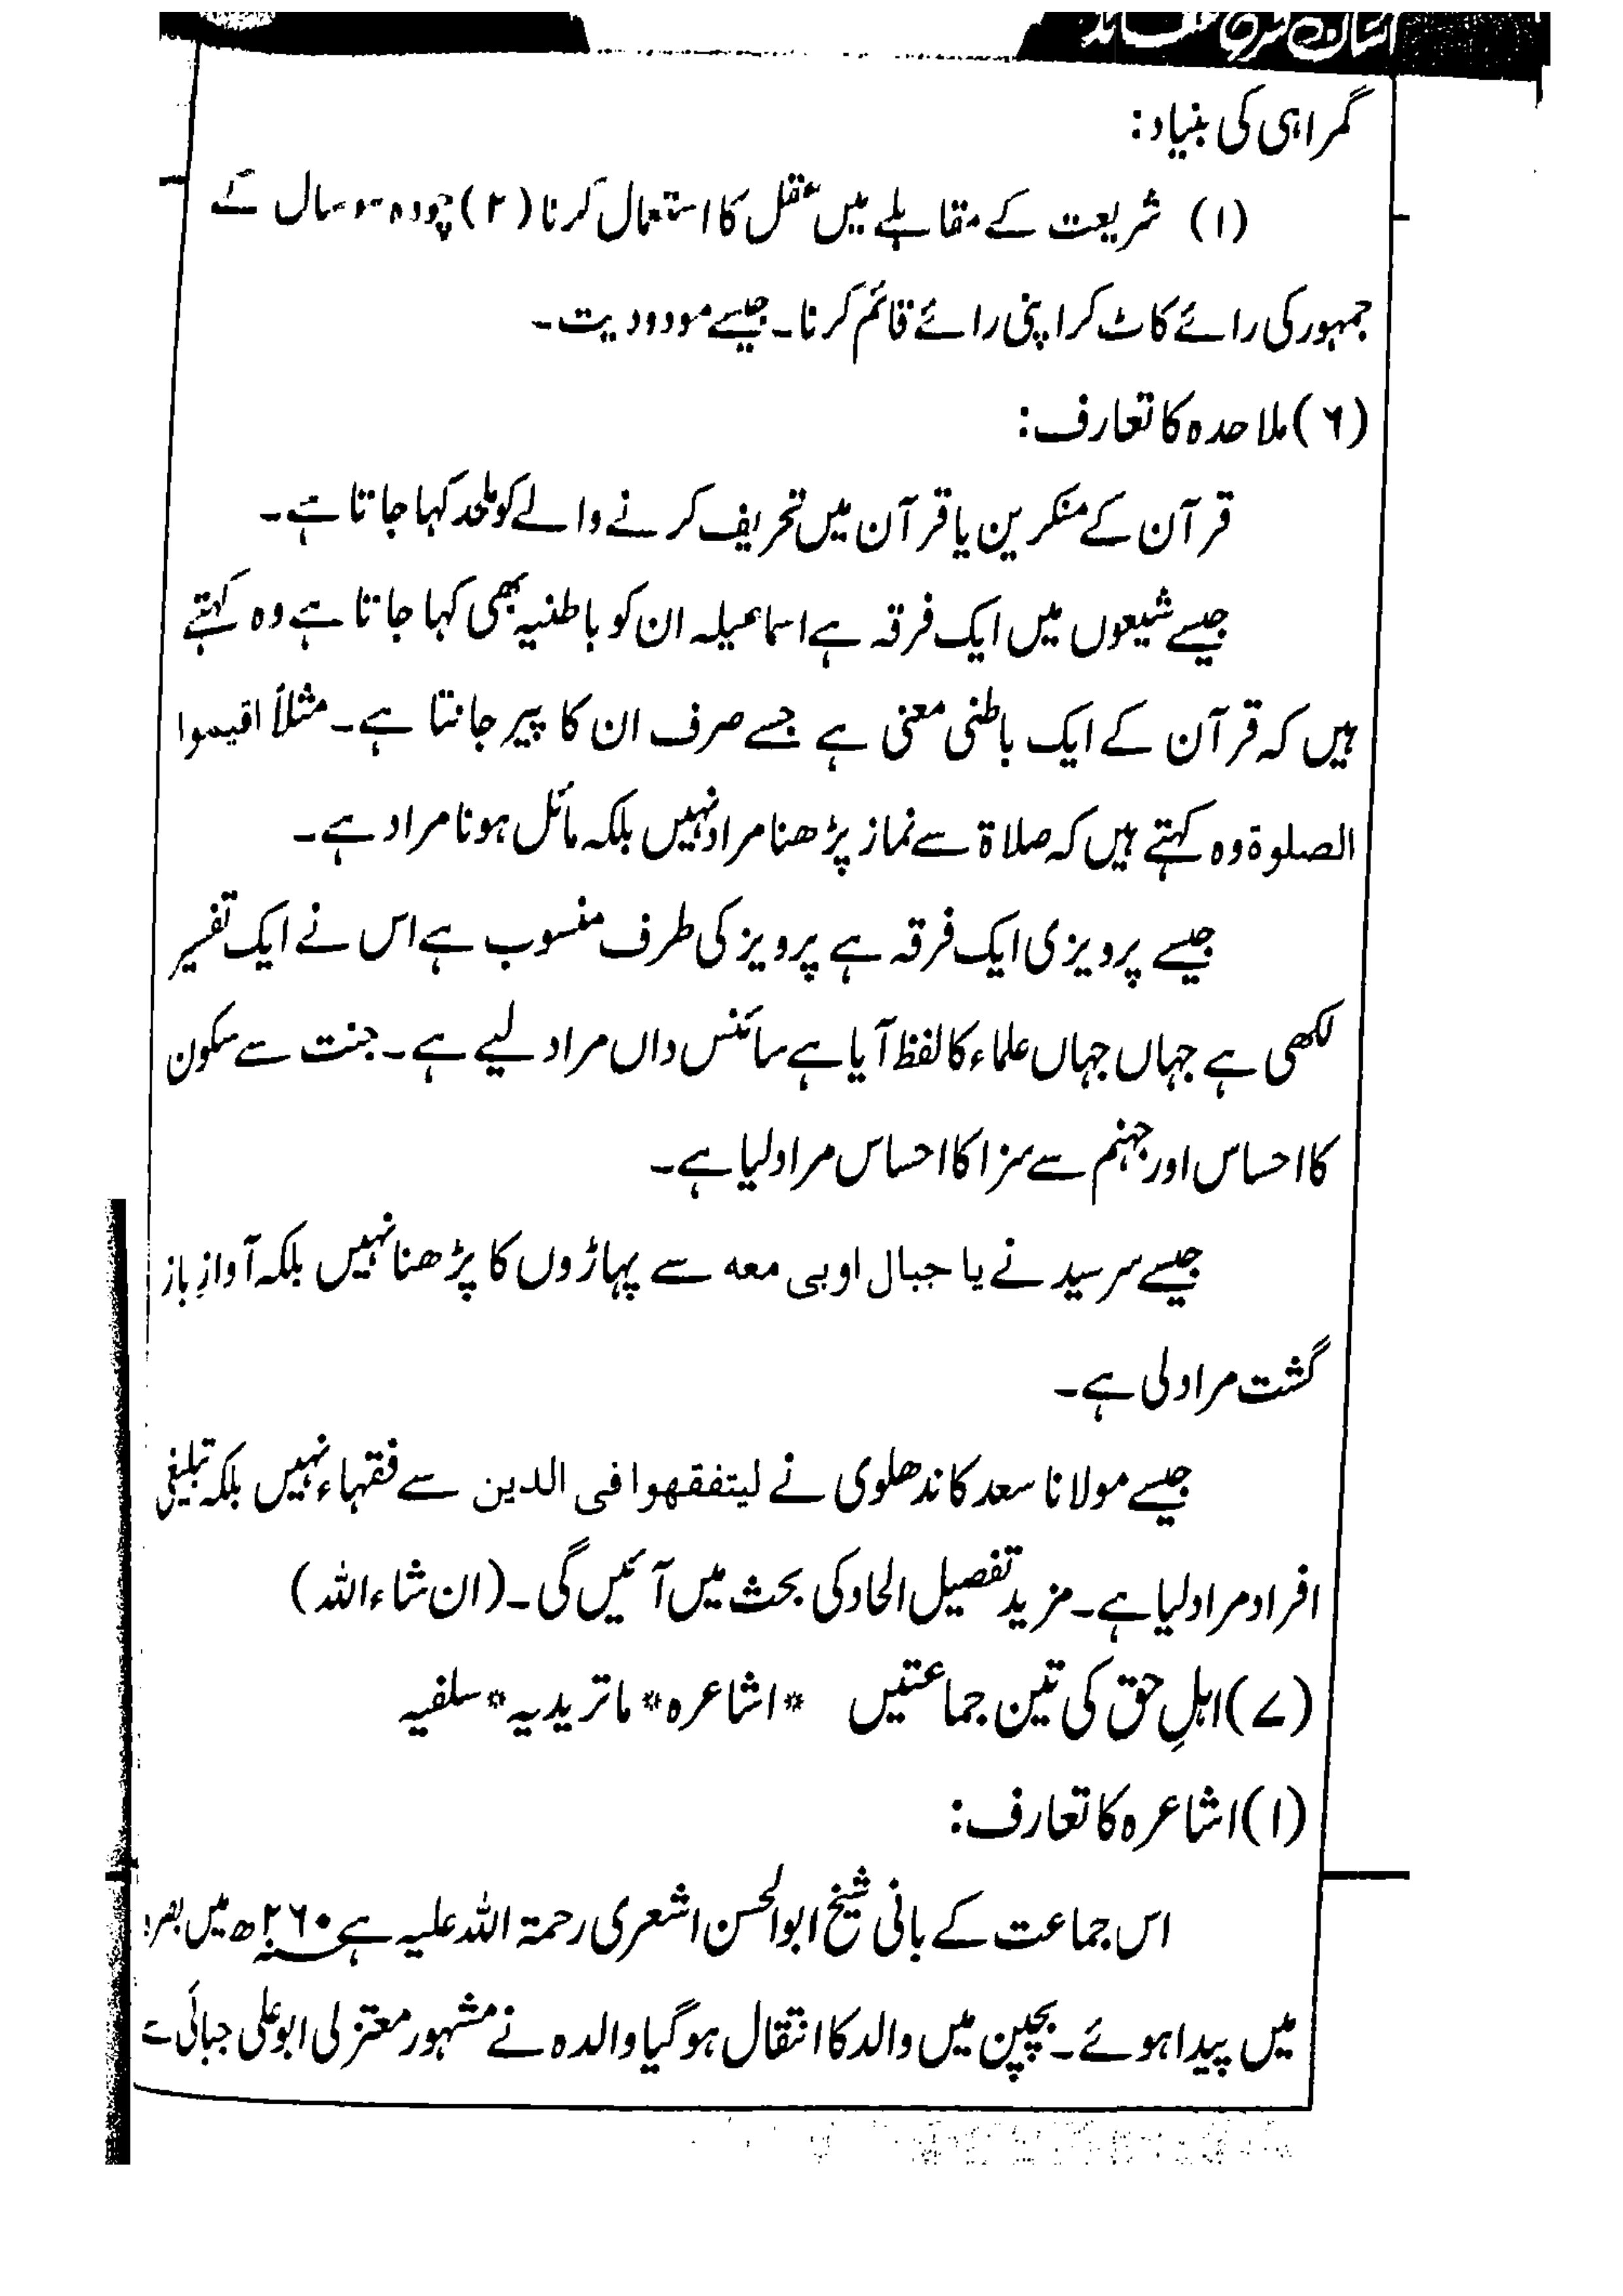 گمراہی کی بنیاد:
(۱) شریعت کے مقابلے میں عقل کا استعمال کرنا (۲) چودہ سو سال کے
جمہور کی رائے کاٹ کر اپنی رائے قائم کرنا۔ جیسے مودودیت۔
(۶) ملاحدہ کا تعارف:
قرآن کے منکرین یا قرآن میں تحریف کرنے والے کو ملحد کہا جاتا ہے۔
جیسے شیعوں میں ایک فرقہ ہے اسماعیلہ ان کو باطنیہ بھی کہا جاتا ہے وہ کہتے
ہیں کہ قرآن کے ایک باطنی معنی ہے جسے صرف ان کا پیر جانتا ہے۔ مثلاً اقیموا
الصلوۃ وہ کہتے ہیں کہ صلاۃ سے نماز پڑھنا مراد نہیں بلکہ مائل ہونا مراد ہے۔
جیسے پرویزی ایک فرقہ ہے پرویز کی طرف منسوب ہے اس نے ایک تفسیر
لکھی ہے جہاں جہاں علماء کا لفظ آیا ہے سائنس داں مراد لیے ہے۔ جنت سے سکون
کا احساس اور جہنم سے سزا کا احساس مراد لیا ہے۔
جیسے سرسید نے یا جبال اوبی معه سے پہاڑوں کا پڑھنا نہیں بلکہ آوازِ باز
گشت مراد لی ہے۔
جیسے مولانا سعد کاندھلوی نے لیتفقھوا فی الدین سے فقہاء نہیں بلکہ تبلیغی
افراد مراد لیا ہے۔ مزید تفصیل الحاد کی بحث میں آئیں گی۔ (ان شاء اللہ)
(۷) اہلِ حق کی تین جماعتیں *اشاعرہ* ماتریدیہ* سلفیہ
(۱) اشاعرہ کا تعارف:
اس جماعت کے بانی شیخ ابوالحسن اشعری رحمۃ اللہ علیہ ہے ۲۶۰ھ میں بصرہ
میں پیدا ہوئے۔ بچپن میں والد کا انتقال ہوگیا والدہ نے مشہور معتزلی ابوعلی جبائی